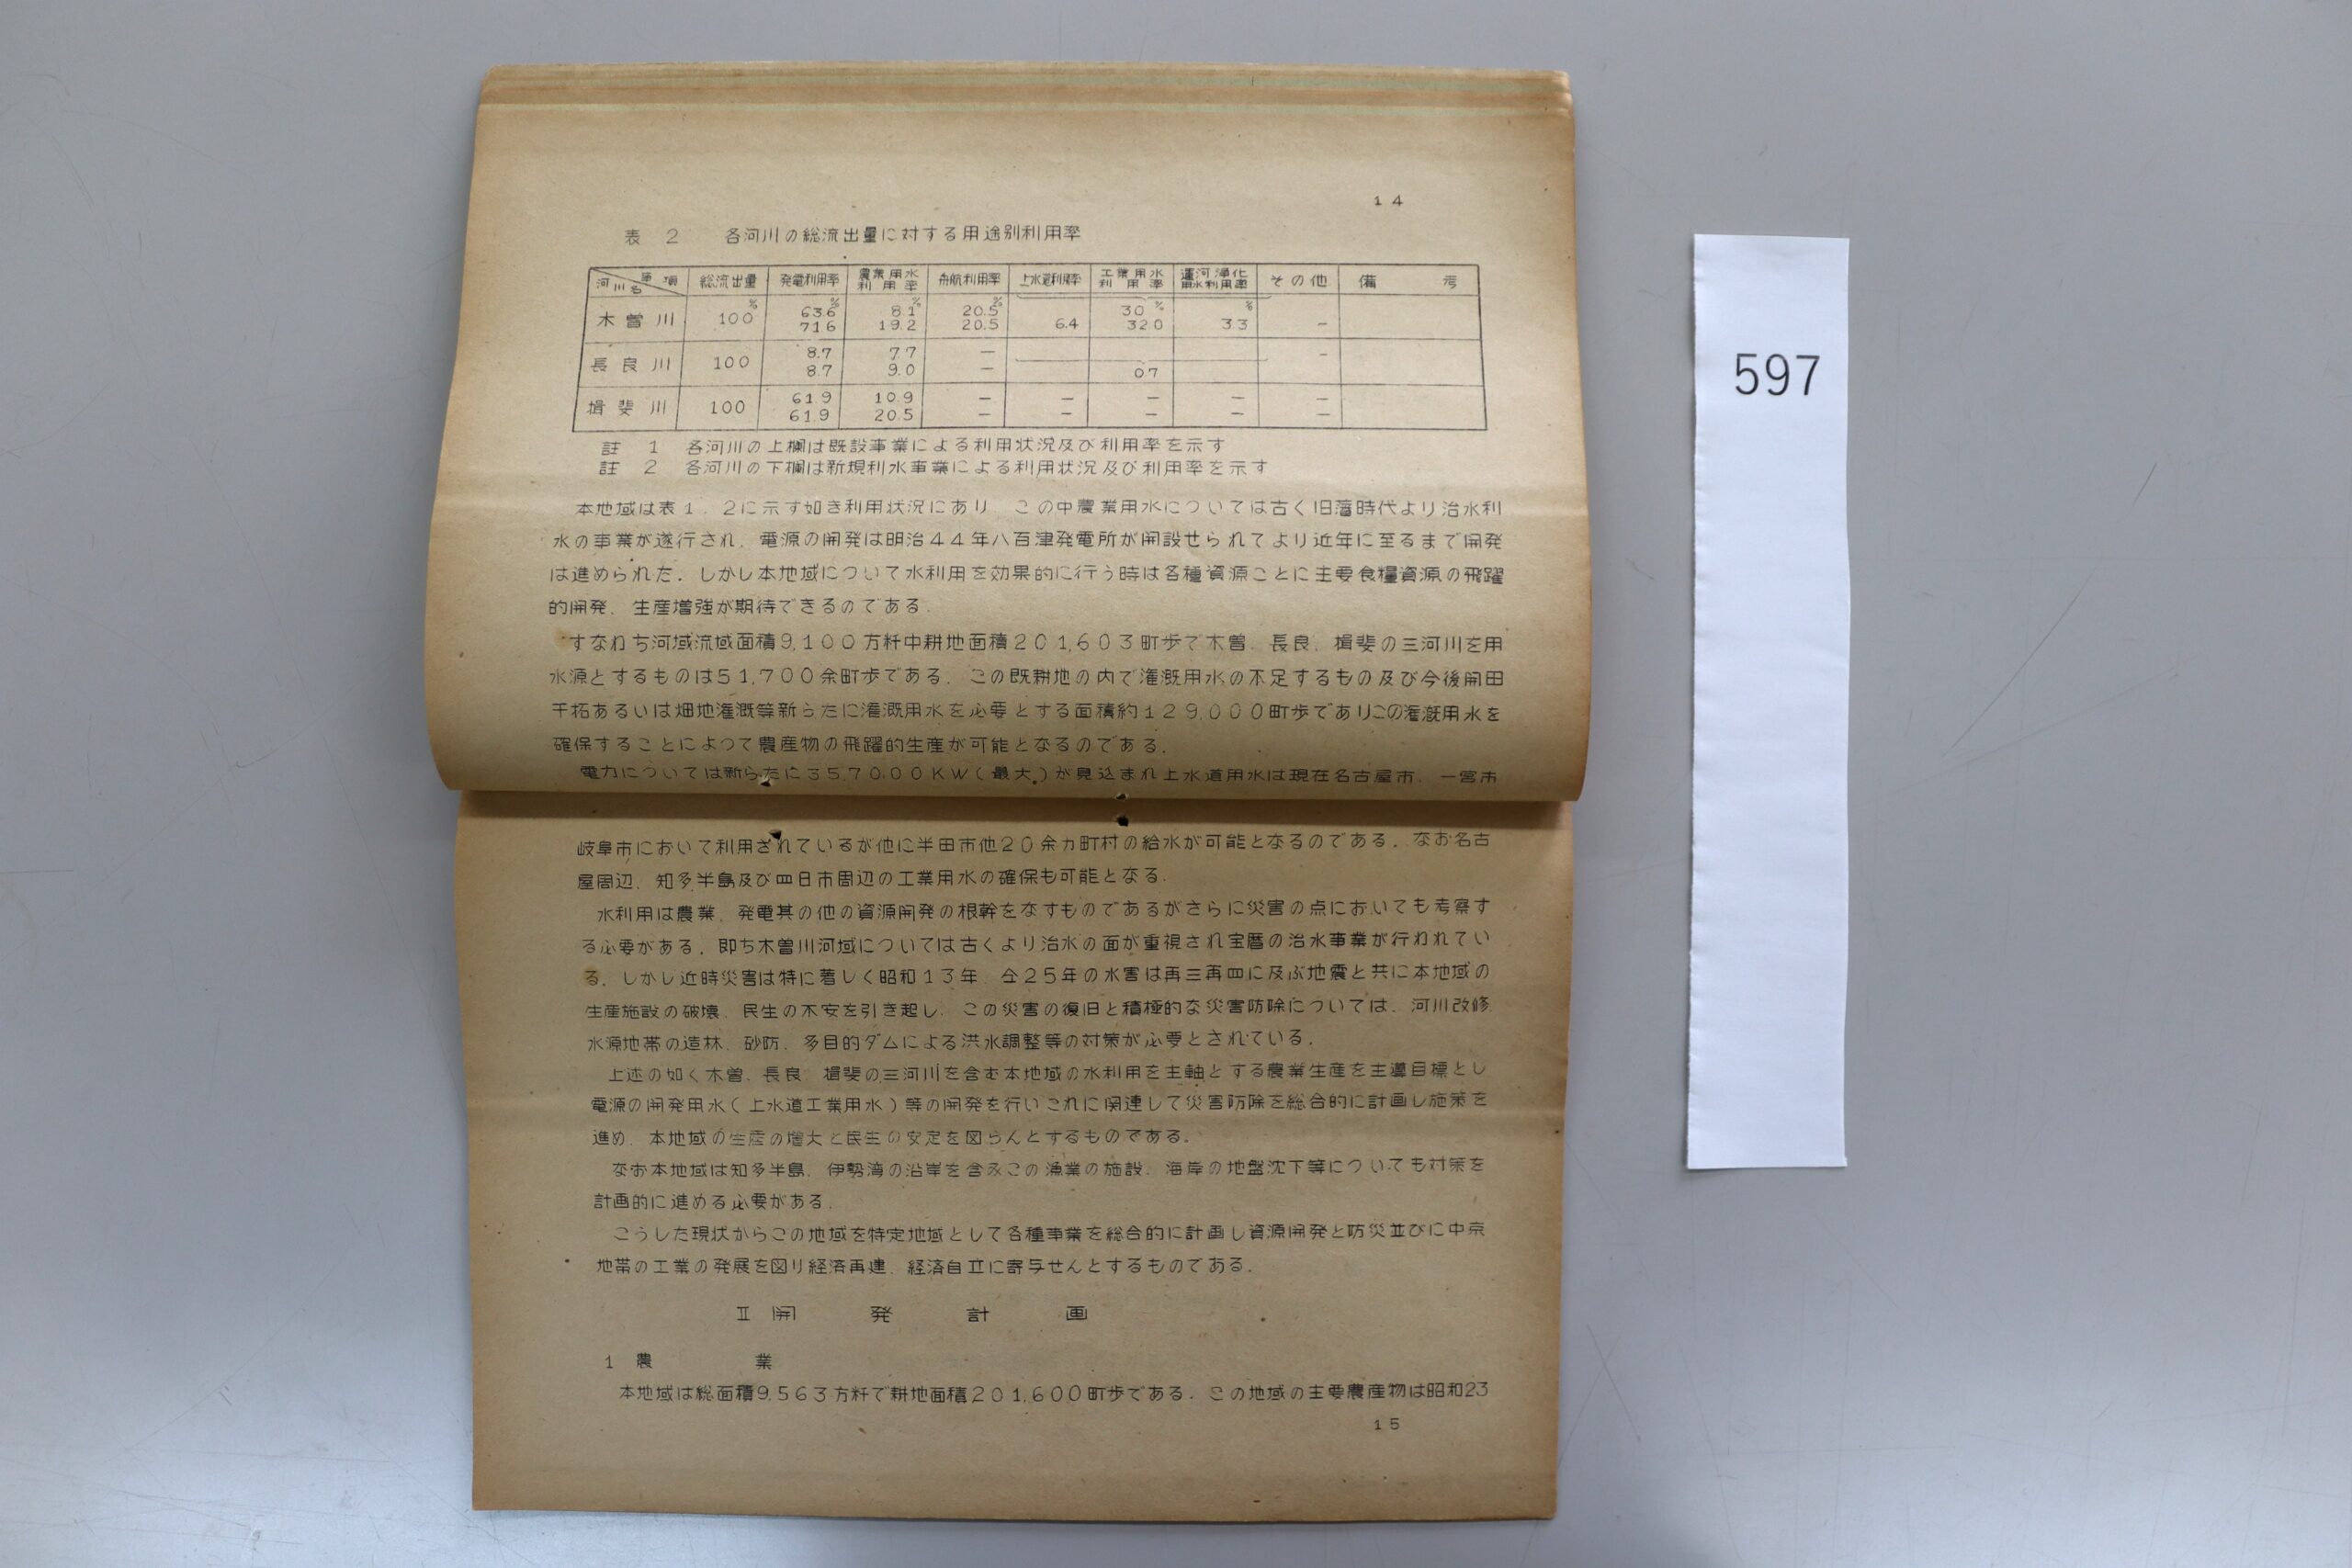 14
表 2 各河川の総流出量に対する用途別利用率
河川名 事項 総流出量 発電利用率 農業用水利用率 舟航利用率 上水道利用率 工業用水利用率 運河浄化用水利用率 その他 備考
木曽川 100% 63.6% 8.1% 20.5% 30% %
71.6 19.2 20.5 6.4 32.0 3.3 −
長良川 100 8.7 7.7 − −
8.7 9.0 − 0.7
揖斐川 100 61.9 10.9 − − − − −
61.9 20.5 − − − − −
註 1 各河川の上欄は既設事業による利用状況及び利用率を示す
註 2 各河川の下欄は新規利水事業による利用状況及び利用率を示す
本地域は表1.2に示す如き利用状況にあり、この中農業用水については古く旧藩時代より治水利
水の事業が遂行され、電源の開発は明治44年八百津発電所が開設せられてより近年に至るまで開発
は進められた。しかし本地域について水利用を効果的に行う時は各種資源ことに主要食糧資源の飛躍
的開発、生産増強が期待できるのである。
すなわち河域流域面積9,100方粁中耕地面積201,603町歩で木曽、長良、揖斐の三河川を用
水源とするものは51,700余町歩である。この既耕地の内で潅漑用水の不足するもの及び今後開田
干拓あるいは畑地潅漑等新らたに潅漑用水を必要とする面積約129,000町歩でありこの潅漑用水を
確保することによつて農産物の飛躍的生産が可能となるのである。
電力については新らたに35,70,00KW(最大)が見込まれ上水道用水は現在名古屋市、一宮市
岐阜市において利用されているが他に半田市他20余カ町村の給水が可能となるのである。なお名古
屋周辺、知多半島及び四日市周辺の工業用水の確保も可能となる。
水利用は農業、発電其の他の資源開発の根幹をなすものであるがさらに災害の点においても考察す
る必要がある。即ち木曽川河域については古くより治水の面が重視され宝暦の治水事業が行われてい
る。しかし近時災害は特に著しく昭和13年、仝25年の水害は再三再四に及ぶ地震と共に本地域の
生産施設の破壊、民生の不安を引き起し、この災害の復旧と積極的な災害防除については、河川改修、
水源地帯の造林、砂防、多目的ダムによる洪水調整等の対策が必要とされている。
上述の如く木曽、長良、揖斐の三河川を含む本地域の水利用を主軸とする農業生産を主導目標とし
電源の開発用水(上水道工業用水)等の開発を行いこれに関連して災害防除を総合的に計画し施策を
進め、本地域の生産の増大と民生の安定を図らんとするものである。
なお本地域は知多半島、伊勢湾の沿岸を含みこの漁業の施設、海岸の地盤沈下等についても対策を
計画的に進める必要がある。
こうした現状からこの地域を特定地域として各種事業を総合的に計画し資源開発と防災並びに中京
地帯の工業の発展を図り経済再建、経済自立に寄与せんとするものである。
Ⅱ 開発計画
1 農業
本地域は総面積9,563方粁で耕地面積201,600町歩である。この地域の主要農産物は昭和23
15
597